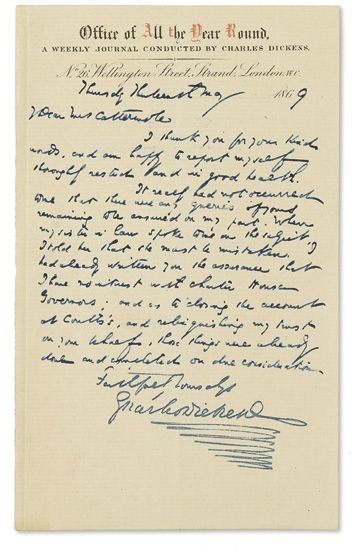 Office of All the Year Round,
A WEEKLY JOURNAL CONDUCTED BY CHARLES DICKENS.
No. 26, Wellington Street, Strand, London, W.C.
Thursday May 1869
Dear Mrs Cattermole
I thank you for your kind
words, and am happy to report myself
rested and in good health.
It really had not occurred
to me that there were any queries of yours
remaining to be answered on my part. When
my sister in law spoke to me on the subject I
told her that she must be mistaken. I
had already written you the assurance that
I have no interest with Charter House
Governors; and as to closing the account
at Coutts's, and relinquishing my trust
on your behalf, those things were already
done and completed on due consideration
Faithfully Yourself
Charles Dickens